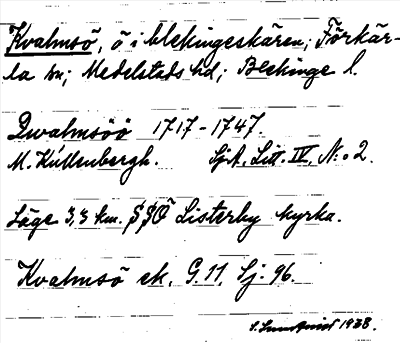 Kvalmsö, ö i blekingeskären; Förkär-
la sn; Medelstads hd; Blekinge l.
Qwalmsöö 1717-1747.
M. Kúllenbergh. SjA. Litt. IV, N:o 2.
Läge 3,3 km. SSÖ Listerby kyrka.
Kvalmsö ek. G. 11, Sj. 96.
1938.